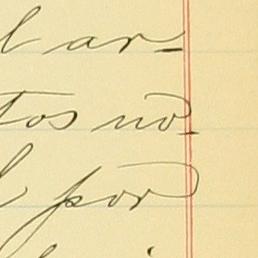 l ar-
tos no-
l por